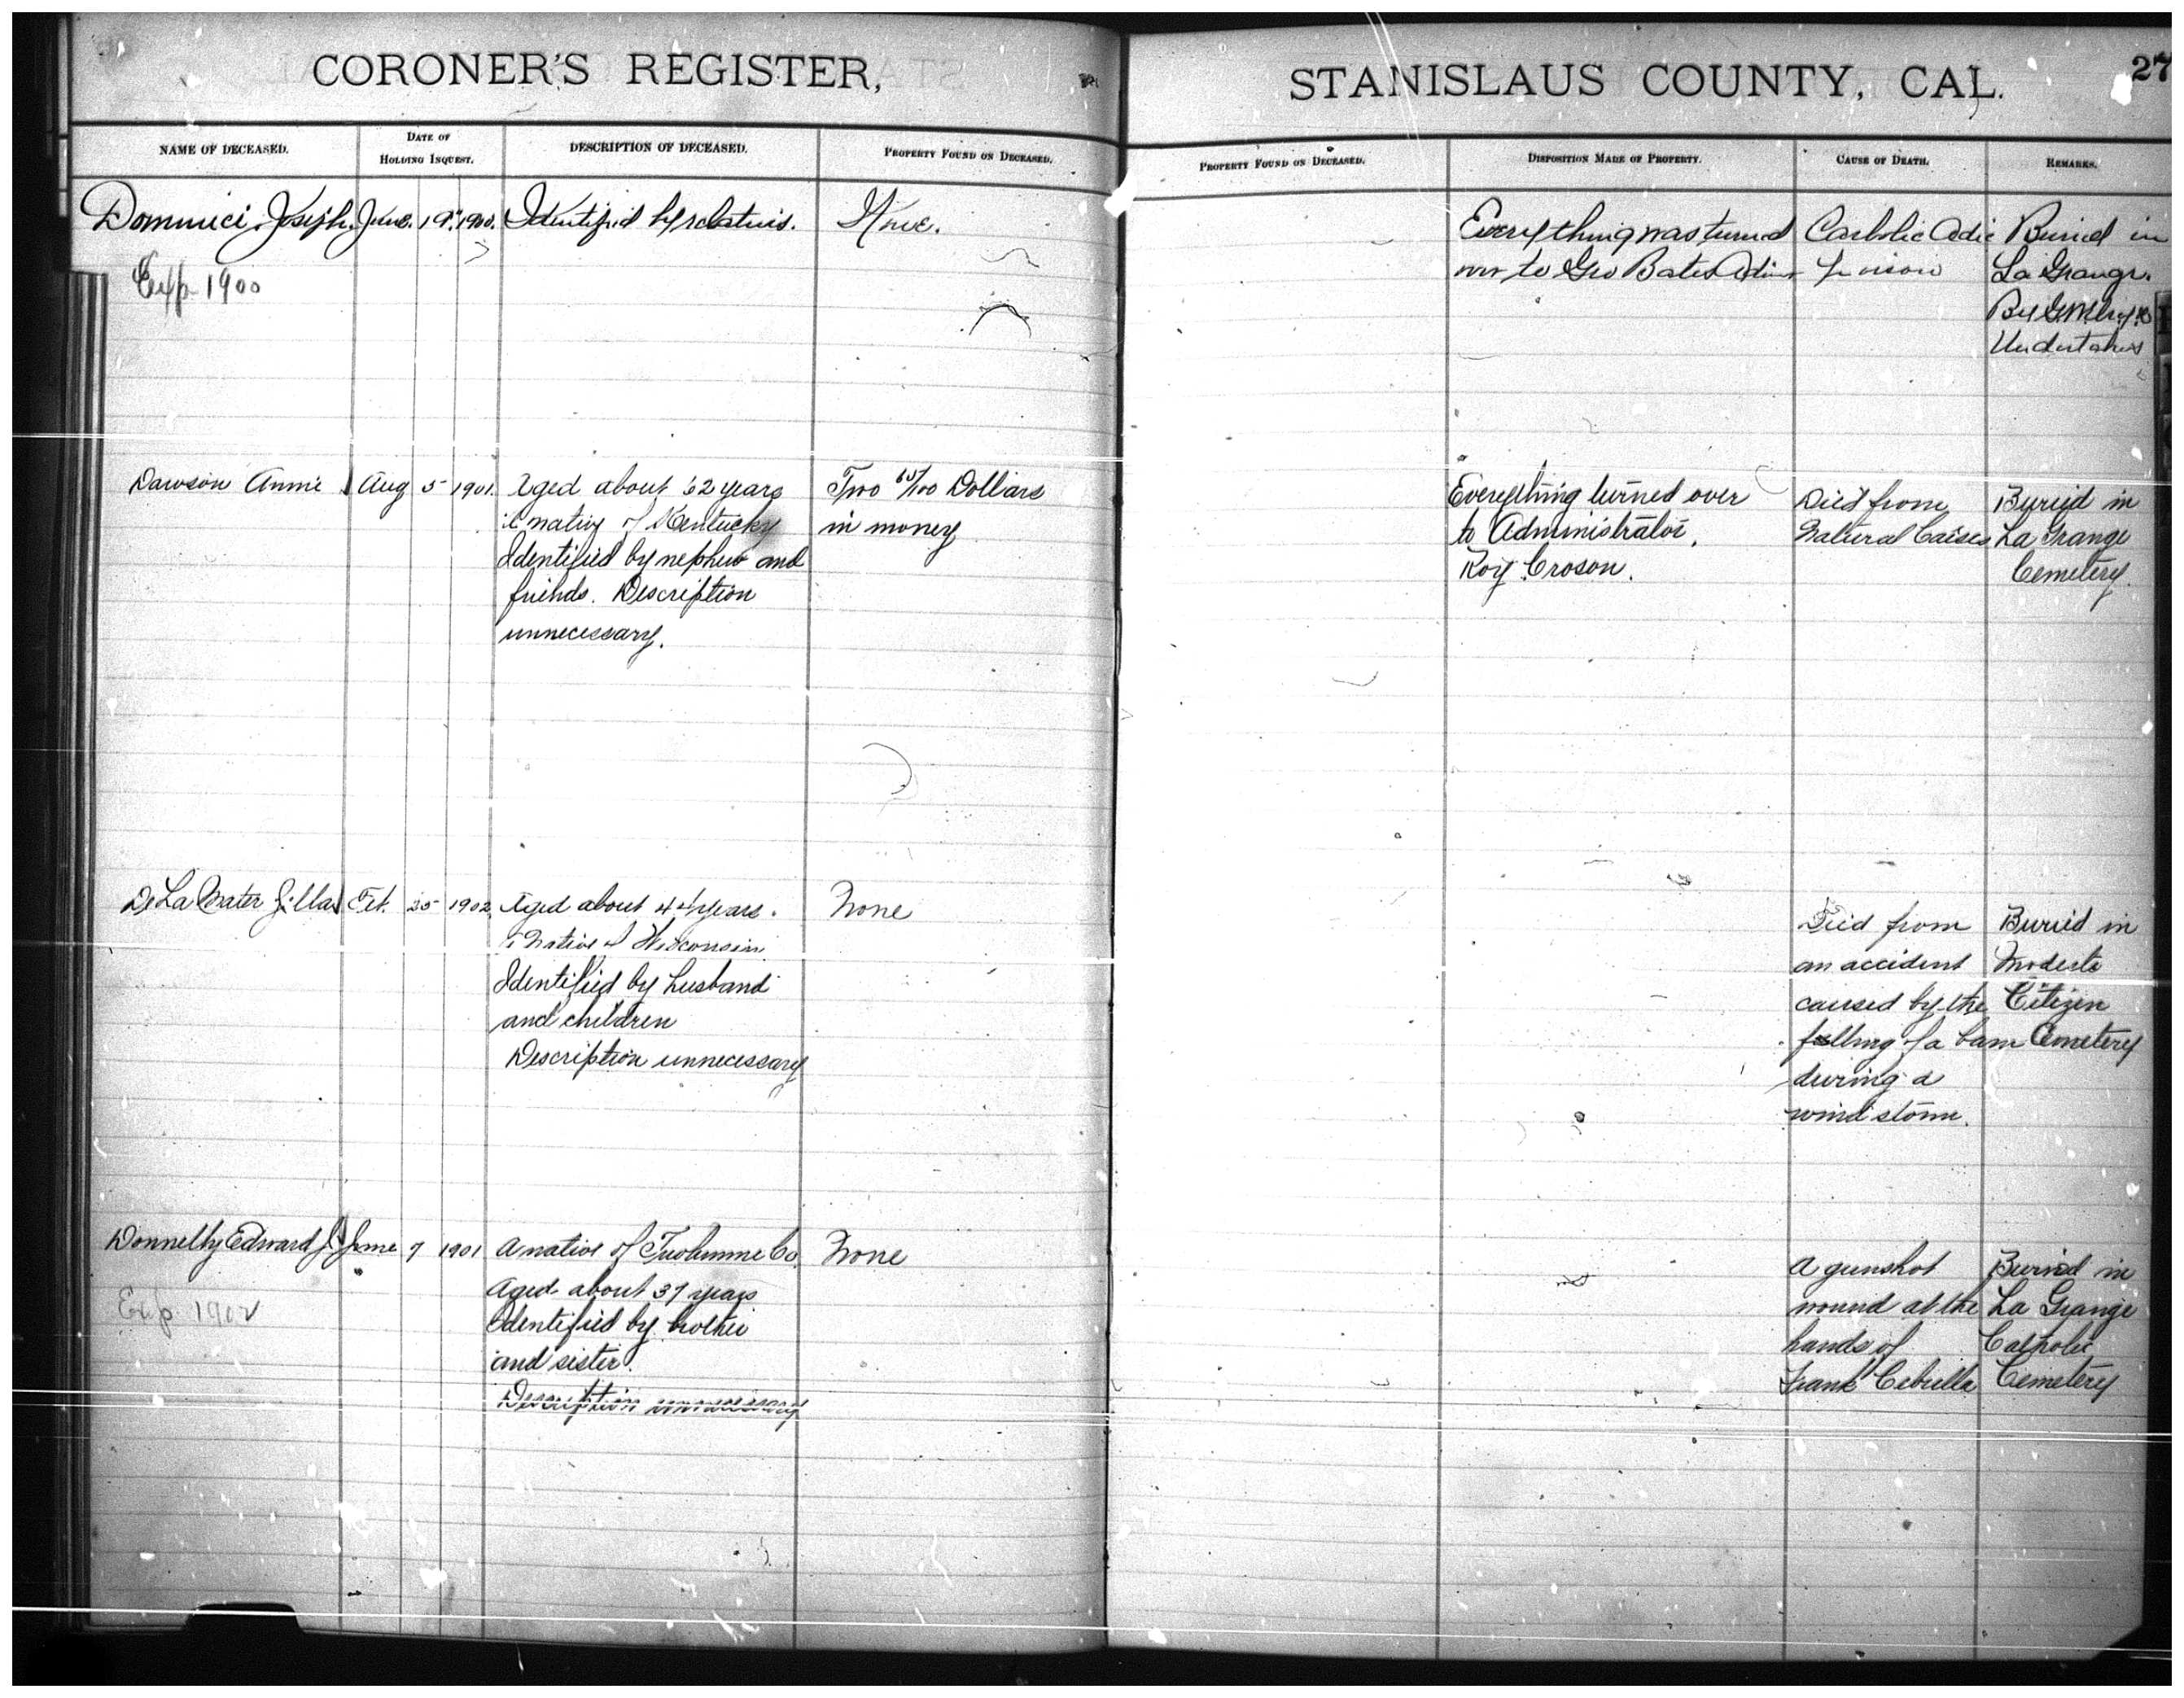 CORONER'S REGISTER,
STANISLAUS COUNTY, CAL.
27
NAME OF DECEASED.
DATE OF
HOLDING INQUEST.
DESCRIPTION OF DECEASED.
PROPERTY FOUND ON DECEASED.
PROPERTY FOUND ON DECEASED.
DISPOSITION MADE OF PROPERTY.
CAUSE OF DEATH.
REMARKS.
Dominici, Joseph. June. 19" 1900.
Exp 1900
Identified by relatives.
None.
Everything was turned
over to Geo Bates Admr
Carbolic Acid
poison
Buried in
La Grange.
By
Undertakers
Dawson Annie Aug 5 1901.
Aged about 62 years
A native of Kentucky
Identified by nephew and
friends. Description
unnecessary.
Two 65/100 Dollars
in money
Everything turned over
to Administrator,
Roy Croson.
Died from
Natural Causes
Buried in
La Grange
Cemetery.
De La Mater Feb. 25 1902
Aged about 44 years.
A Native of Wisconsin
Identified by husband
and children
Description unnecessary
None
Died from
an accident
caused by the
falling of a barn
during a
wind storm.
Buried in
Modesto
Citizen
Cemetery
Donnelly Edward J. June 7 1901
Exp 1902
A native of Tuolumne Co.
Aged about 37 years
Identified by brother
and sister.
Description unnecessary
None
A gunshot
wound at the
hands of
Frank Cebrilla
Buried in
La Grange
Catholic
Cemetery